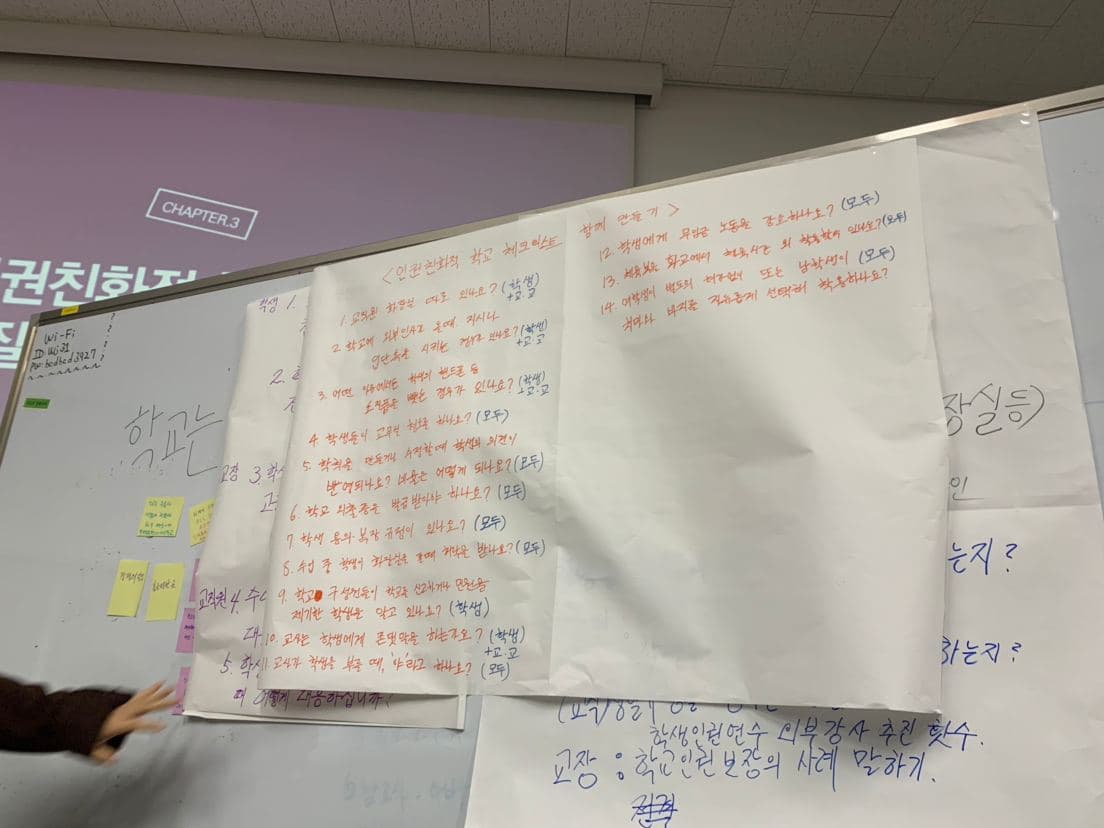 CHAPTER.3
권친화적
질
Wi-Fi
ID: Wi31
PW: bcdbcd3927
학교는
학생 1.
2.
교장 3. 학
교직원 4.
5. 학생
때 어떻게 대응하십니까?
<인권친화적 학교 체크리스트
함께 만들기>
1. 교직원 화장실 따로 있나요? (학생+교.교
2. 학교에 외부인사가 올때, 지시나
청소를 시키는 경우가 있나요? (학생)+교.교
3. 어떤 이유에서든 학생의 핸드폰 등
소지품을 뺏는 경우가 있나요? (학생)+교.교
4. 학생들이 교무실 청소를 하나요? (모두)
5. 학칙을 만들거나 수정할때 학생의 의견이
반영되나요? 비율은 어떻게 되나요? (모두)
6. 학교 외출증은 발급 받아야 하나요? (모두)
7. 학생 용의·복장 규정이 있나요? (모두)
8. 수업 중 학생이 화장실을 갈때 허락을 받나요? (모두)
9. 학교 구성원들이 학교를 신고하거나 민원을
제기한 학생을 알고 있나요? (학생)
10. 교사는 학생에게 존댓말을 하는가요? (학생)+교.교
11. 교사가 학생을 부를 때, '야'라고 하나요? (모두)
12. 학생에게 무임금 노동을 강요하나요? (모두)
13. 체육복은 학교에서 체육시간 외 착용할수 있나요? (모두)
14. 여학생이 별도의 허락없이 또는 남학생이 (모두)
치마와 바지를 자유롭게 선택해 착용하나요?
장실 등)
인
는지?
하는지?
학생인권연수 외부강사 추진 횟수.
교장 : 학교인권보장의 사례 말하기.